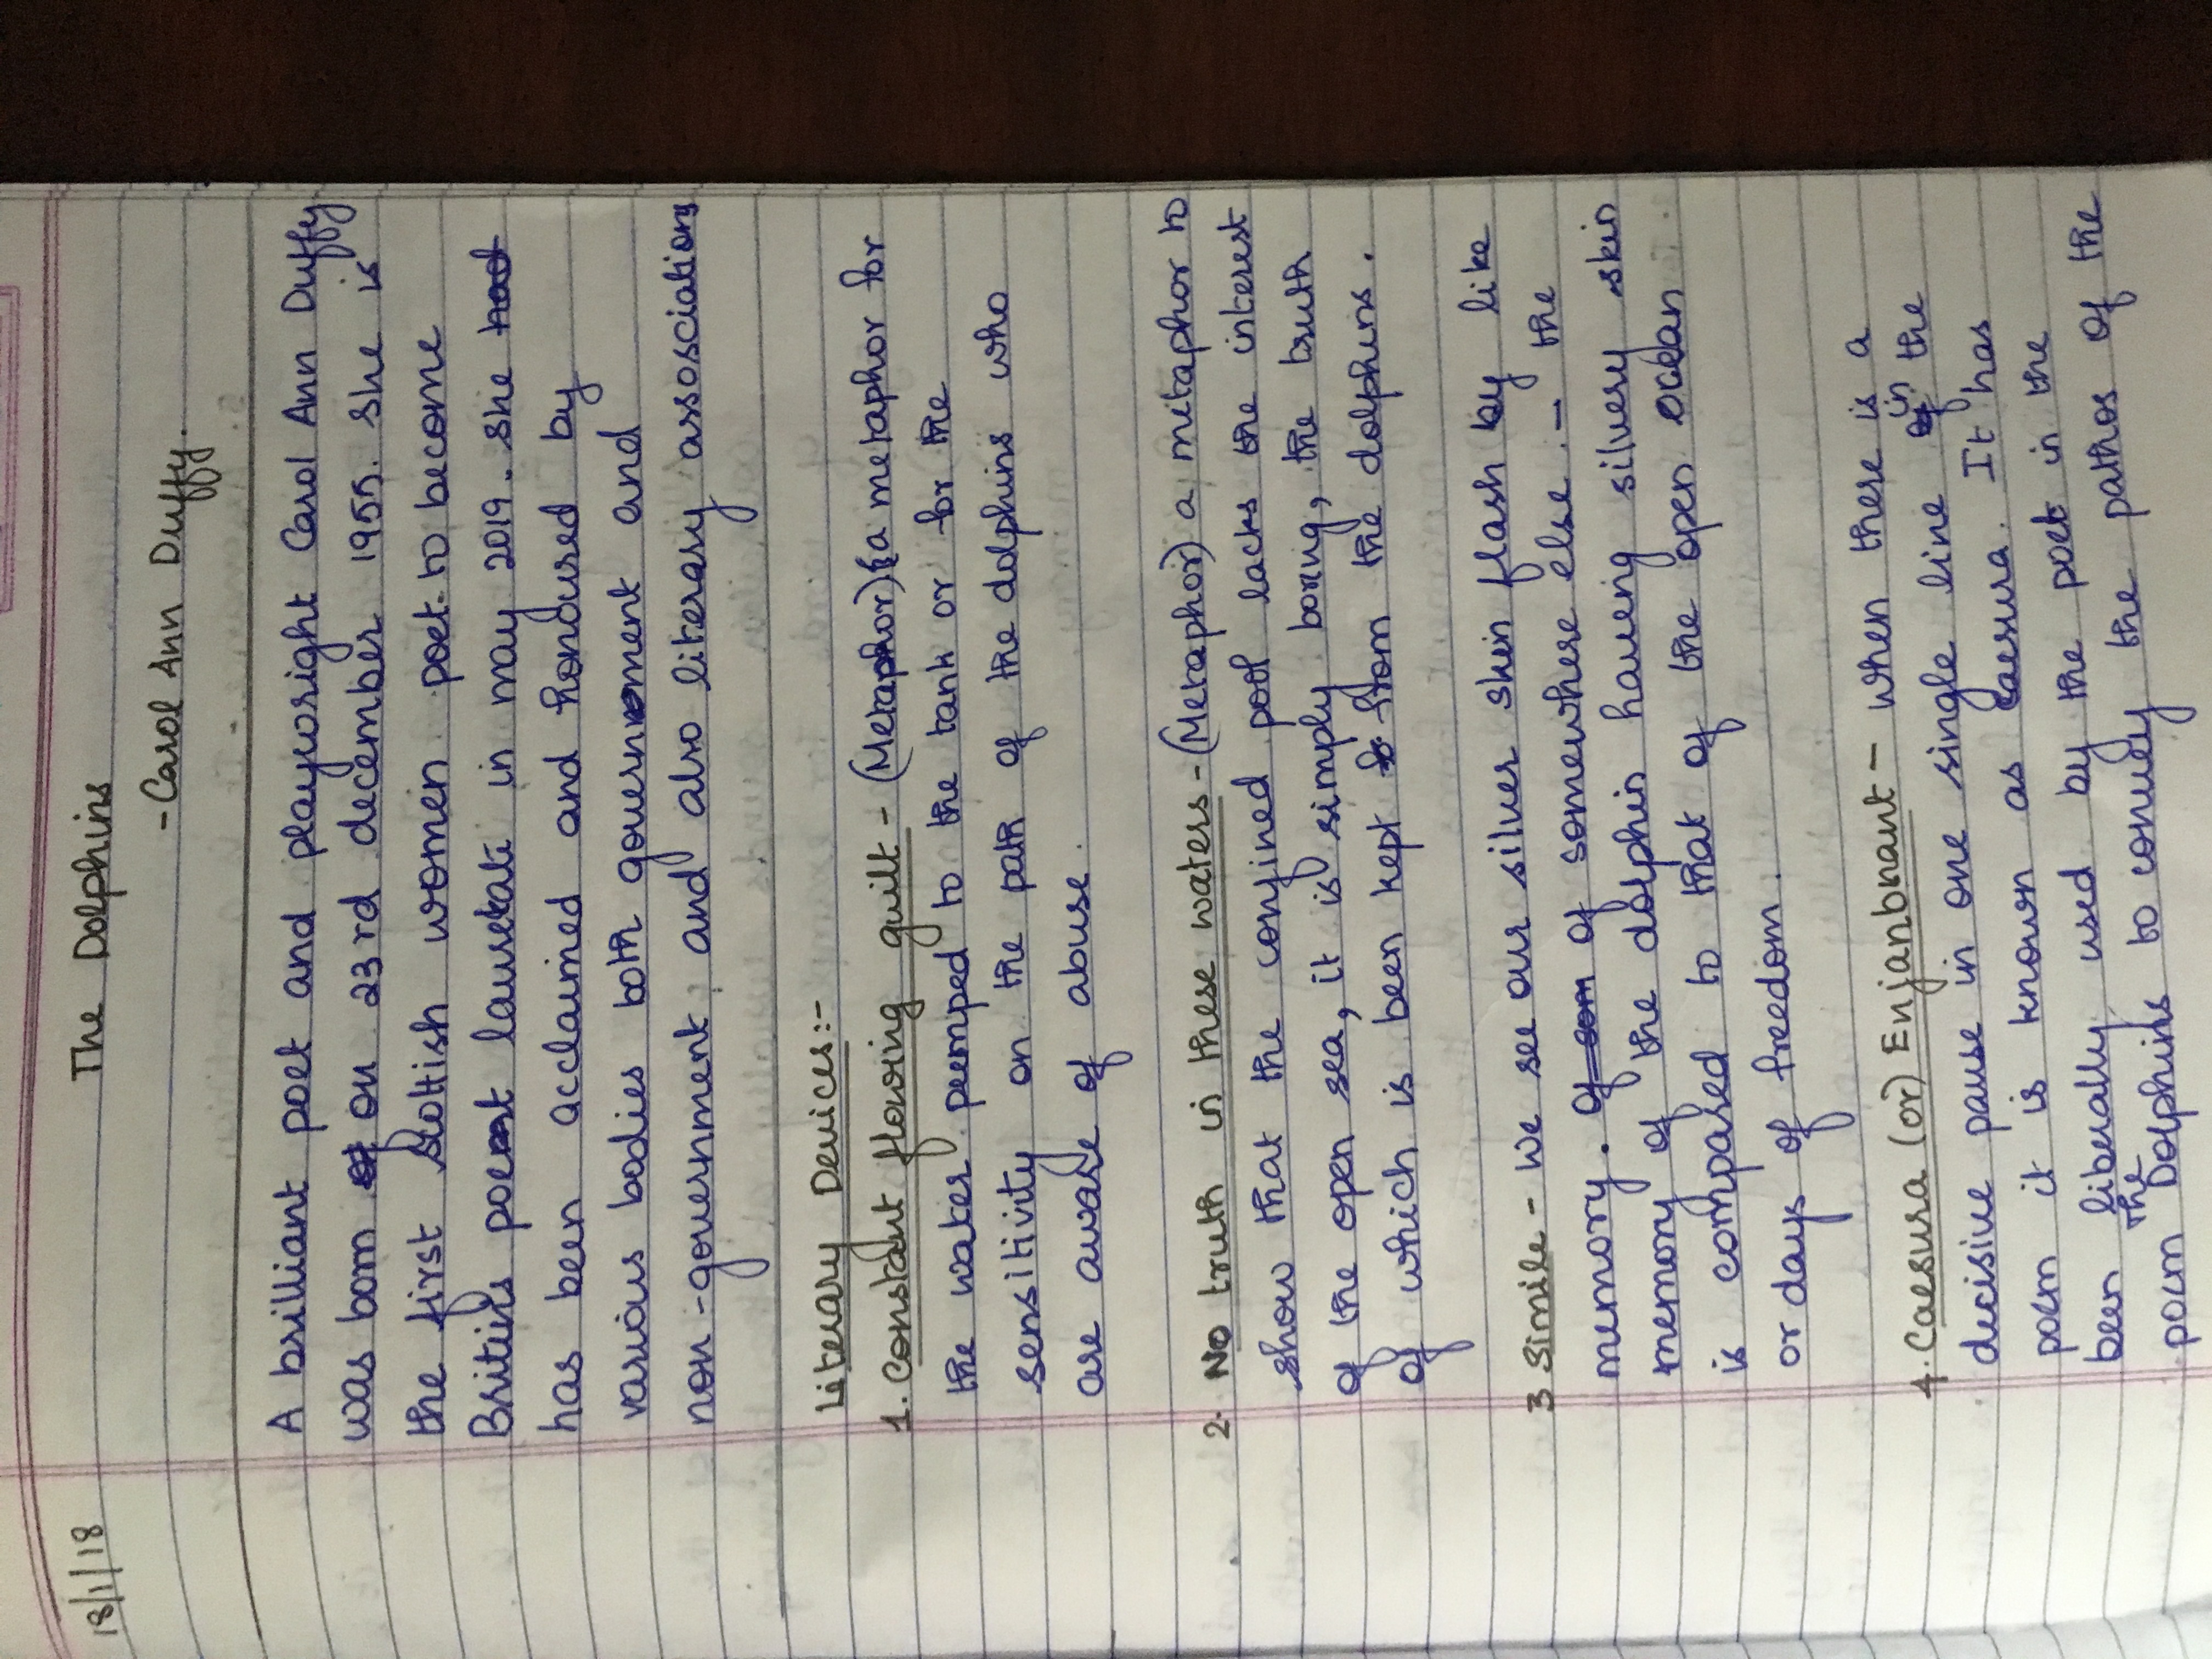 18/1/18
The Dolphins
-Carol Ann Duffy.
A brilliant poet and playwright Carol Ann Duffy
was born of on 23rd december 1955. She is
the first scottish women poet to become
Britins poet lauretate in may 2019. She had
has been acclaimed and honoured by
various bodies both government and
non-government, and also literary assosciations
Literary Devices:-
1. Constant flowing guilt - (Metaphor) (a metaphor for
the water pumped to the tank or for the
sensitivity on the path of the dolphins who
are aware of abuse.
2. No truth in these waters - (Metaphor) a metaphor to
show that the confined pool lacks the interest
of the open sea, it is simply boring, the truth
of which is been kept fo from the dolphins.
3 Simile - We see our silver skin flash by like
memory. of som of somewhere else. - the
memory of the dolphin having silvery skin
is compared to that of the open ocean
or days of freedom.
4. Caesura (or) Enjanbnant - when there is a
decisive pause in one single line of in the
poem it is known as caesura. It has
been liberally used by the poet in the
poem The Dolphins to convey the pathos of the